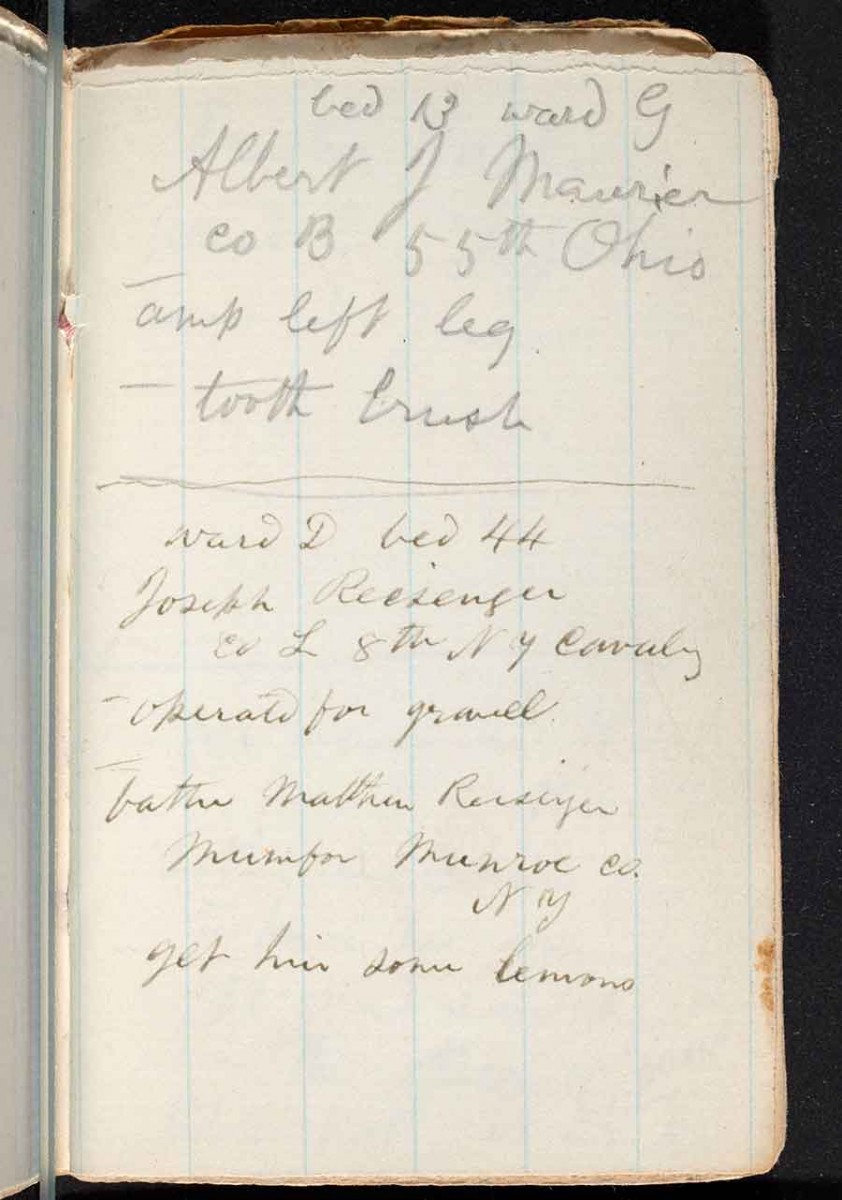 bed 13 ward G
Albert J Maurier
co B 55th Ohio
amp left leg.
— tooth brush
ward D bed 44
Joseph Reesenger
co L 8th N Y Cavalry
– operatd for gravell.
father Matthew
Mumfor Munroe co.
N Y
get him some lemons